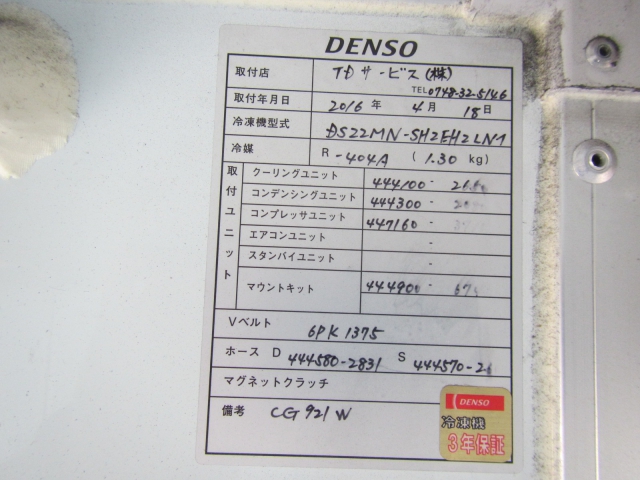 DENSO
取付店 TDサービス(株)
TEL 0748-32-5146
取付年月日 2016年 4月 18日
冷凍機型式 DS22MN-SH2EH2LN1
冷媒 R-404A (1.30 kg)
取付ユニット
クーリングユニット 444100-
コンデンシングユニット 444300-
コンプレッサユニット 447160-
エアコンユニット -
スタンバイユニット -
マウントキット 444900-
Vベルト 6PK1375
ホース D 444580-2831 S 444570-
マグネットクラッチ
備考 CG921W
DENSO
冷凍機
3年保証